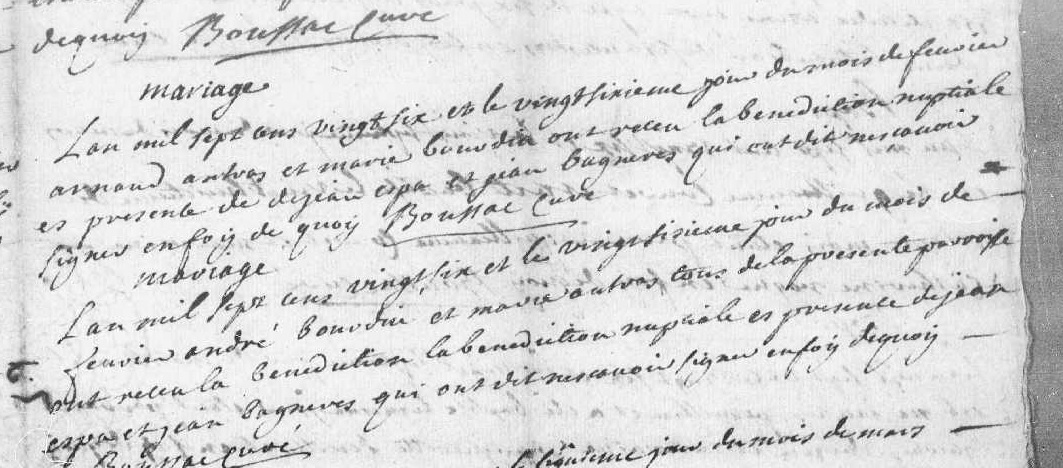 dequoy Boussac Curé
mariage
Lan mil sept cens vingt six et le vingtsixieme jour du mois de feuvrier
arnaud antras et marie bourdiu ont receu la benediction nuptiale
es presente de dejean espa et jean bagneres qui ont dit nescavoir
signer enfoy de quoy Boussac Curé
mariage
Lan mil sept cens vingt six et le vingtsixieme jour du mois de
feuvrier andré bourdiu et marie antras tous de la presente parroisse
ont receu la benediction la benediction nuptiale es presence dejean
espa et jean bagneres qui ont dit nescavoir signer enfoy dequoy
Boussac Curé
jour du mois de mars